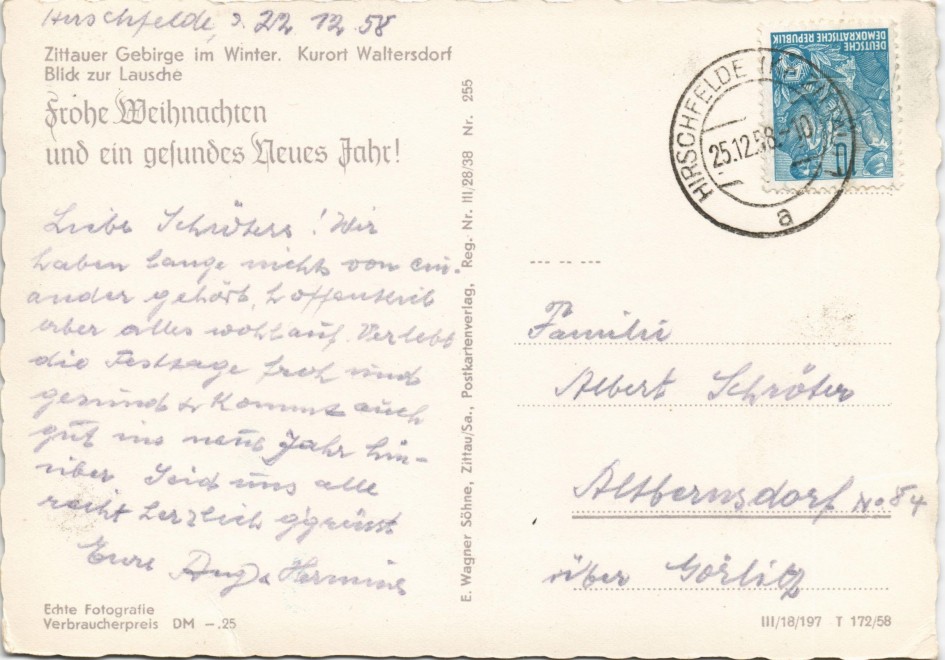 Hirschfelde, d. 22 12 58
Zittauer Gebirge im Winter. Kurort Waltersdorf
Blick zur Lausche
Frohe Weihnachten
und ein gesundes Neues Jahr!
Liebe Schröters! Wir
haben lange nichts von ein-
ander gehört, hoffentlich
aber alles wohlauf. Verlebt
die Festtage froh und
gesund & kommt auch
gut ins neue Jahr hin-
über Seid uns alle
recht herzlich ggrüsst
Eure Hermine
Echte Fotografie
Verbraucherpreis DM -.25
E. Wagner Söhne, Zittau/Sa., Postkartenverlag, Reg. Nr. III/28/38 Nr. 255
DEUTSCHE
DEMOKRATISCHE REPUBLIK
10
HIRSCHFELDE
25.12.58.-10
a
Familie
Albert Schröter
Altbernsdorf No 84
über Görlitz
III/18/197 T 172/58